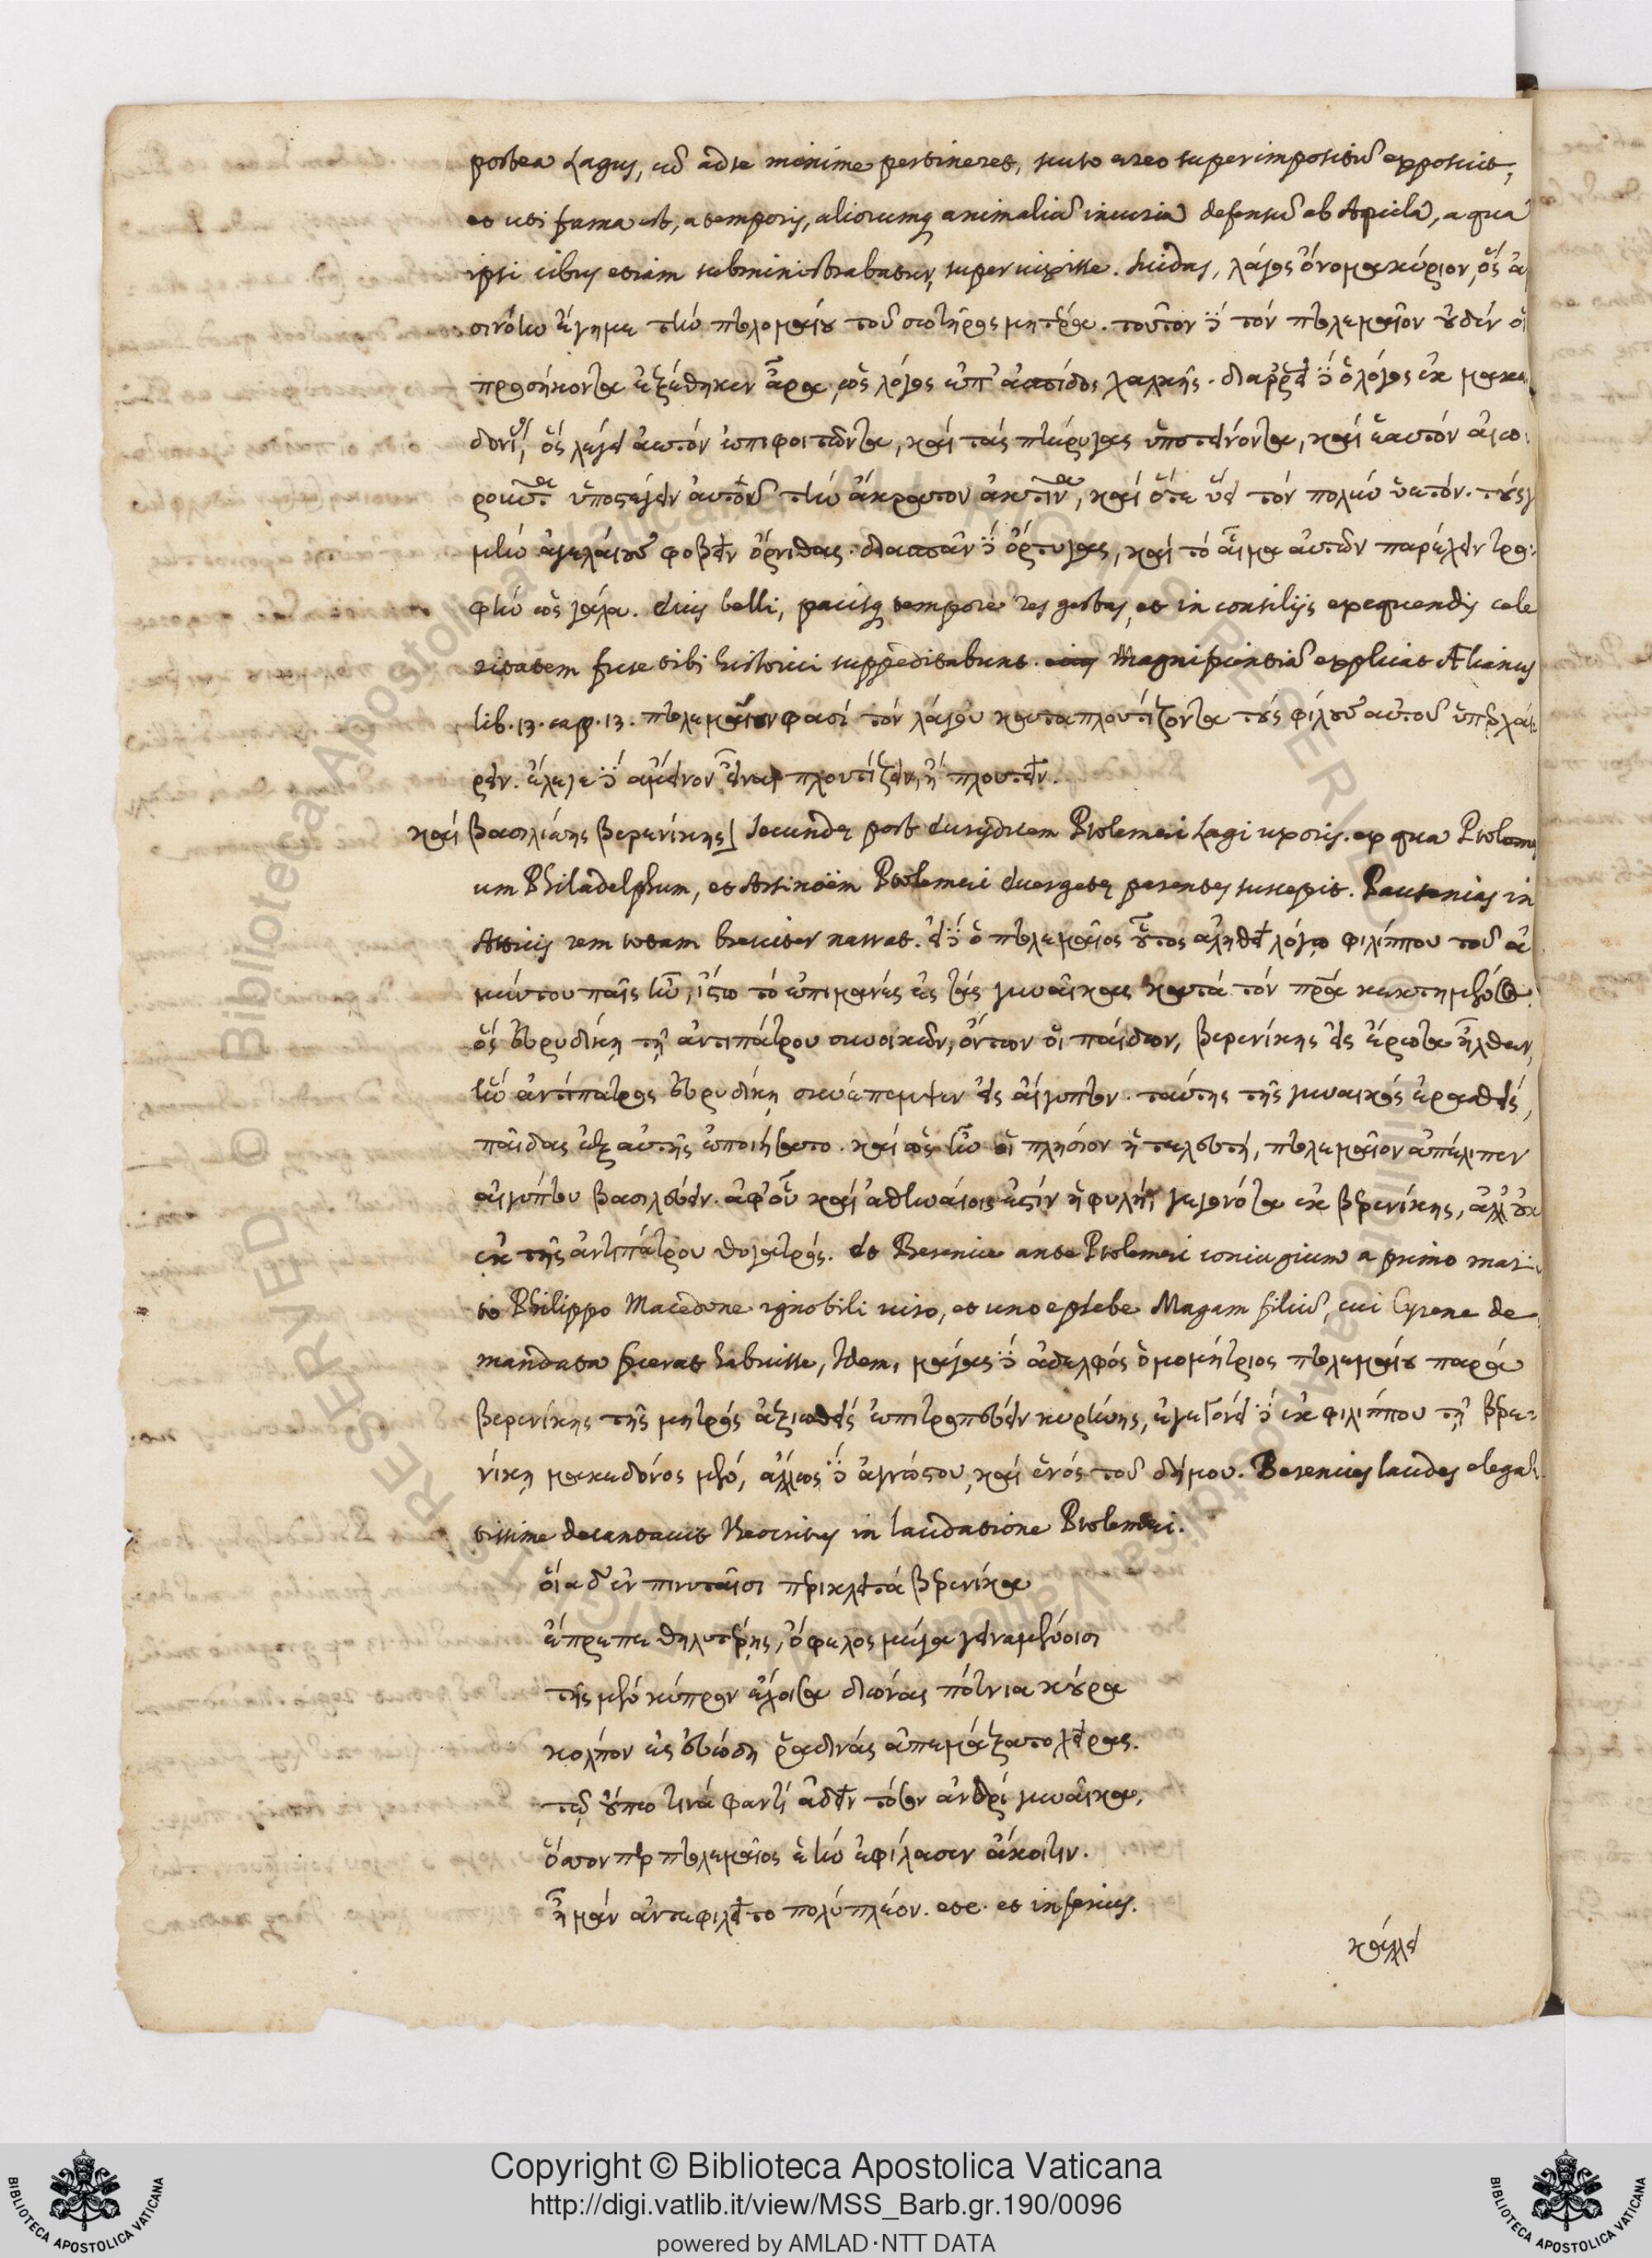 postea Lagus, ud ad se minime pertineret, scuto aereo superimpositũ exposuit,
et uti fama est, a temporis, aliorumq animaliũ iniuria defensũ ab Aquila, a qua
ipsi cibus etiam subministrabatur, supervixisse. Suidas, λάγος ὄνομα κύριον, ὅς ἀρ
σινόην ἔγημε τὴν πτολεμαίου τοῦ σωτῆρος μητέρα. τοῦτον δέ τόν πτολεμαῖον οὐδέν οἱ
προσήκοντα ἐξέθηκεν ἄρα, ὡς λόγος ἐπ' ἀσπίδος χαλκῆς. διαρρεῖ δέ ὁ λόγος ἐκ μακε
δονίας, ὅς λέγει ἀετόν ἐπιφοιτῶντα, καί τάς πτέρυγας ὑποτείνοντα, καί ἑαυτόν αἰω
ροῦντα ὑποστέγειν αὐτοῦ τὴν ἄκρατον ἀκτῖνα, καί ὅτε ὕει τόν πολύν ὑετόν. τούς
μὴν ἀγελαίους φοβεῖν ὄρνιθας. διασπᾶν δέ ὄρτυγας, καί τό αἷμα αὐτῶν παρέχειν τρο
φὴν ὡς γάλα. Eius belli, pacisq tempore res gestas, et in consilijs exequendis cele
ritatem fuse tibi historici suppeditabunt. Magnificentiã explicat Ælianus
lib. 13. cap. 13. πτολεμαῖον φασί τόν λάγου καταπλουτίζοντα τούς φίλους αὐτοῦ ὑπερχαί
ρειν. ἔλεγε δέ ἀμεῖνον εἶναι πλουτίζειν, ἤ πλουτεῖν.
καί βασιλίσσης βερενίκης] secundae post Eurydicem Ptolemaei Lagi uxoris. ex qua Ptolemae
um Philadelphum, et Arsinoëm Ptolemaei Euergetae parentes suscepit. Pausanias in
Atticis rem totam breviter narrat. εἰ δέ ὁ πτολεμαῖος οὗτος ἀληθεῖ λόγῳ φιλίππου τοῦ ἀ
μύντου παῖς ἦν, ἴστω τό ἐπιμανές ἐς τάς γυναῖκας κατά τόν πατέρα κεκτημένος.
ὅς εὐρυδίκῃ τῇ ἀντιπάτρου συνοικῶν, ὄντων οἱ παίδων, βερενίκης εἰς ἔρωτα ἦλθεν,
ἥν ἀντίπατρος εὐρυδίκῃ συνέπεμψεν εἰς αἴγυπτον. ταύτης τῆς γυναικός ἐρασθείς,
παῖδας ἐξ αὐτῆς ἐποιήσατο. καί ὡς ἦν οἱ πλησίον ἡ τελευτή, πτολεμαῖον ἀπέλιπεν
αἰγύπτου βασιλεύειν. ἀφ' οὗ καί ἀθηναίοις ἐστίν ἡ φυλή, γεγονότα ἐκ βερενίκης, ἀλλ' οὐκ
ἐκ τῆς ἀντιπάτρου θυγατρός. et Berenice ante Ptolemaei coniugium a primo mari
to Philippo Macedone ignobili viro, et uno e plebe Magam filiũ, cui Cyrene de
mandata fuerat habuisse, Idem, μάγας δέ ἀδελφός ὁμομήτριος πτολεμαίου παρά
βερενίκης τῆς μητρός ἀξιωθείς ἐπιτροπεύειν κυρήνης, ἐγεγόνει δέ ἐκ φιλίππου τῇ βερε
νίκῃ μακεδόνος μέν, ἄλλως δέ ἀγνώστου, καί ἑνός τοῦ δήμου. Berenices laudes elegan
tissime decantavit Theocritus in laudatione Ptolemaei.
οἵα δ' ἐν πινυταῖσι περικλειτά βερενίκα
ἔπρεπε θηλυτέρης, ὄφελος μέγα γειναμένοισι
τῆς μέν κύπρον ἔχοισα διώνας πότνια κούρα
κολπόν ἐς εὐώδη ῥαδινάς ἀπεμάξατο χεῖρας.
τῷ οὔπω τινά φαντί ἁδεῖν τόσον ἀνδρί γυναῖκα,
ὅσσον περ πτολεμαῖος ἑήν ἐφίλασεν ἄκοιτιν.
ἦ μάν ἀντεφιλεῖτο πολύ πλέον. etc. et inferius.
κάλλει
Copyright © Biblioteca Apostolica Vaticana
http://digi.vatlib.it/view/MSS_Barb.gr.190/0096
powered by AMLAD·NTT DATA